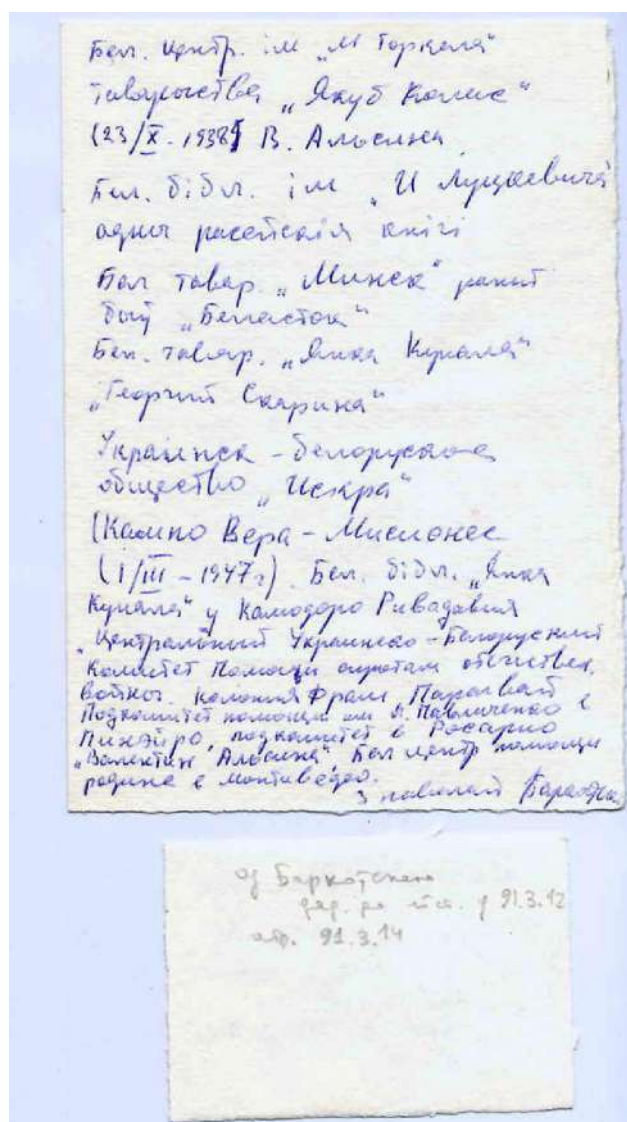 Бел. центр. ім „М Горкага"
таварыства „Якуб Колас"
(23/X. 1938) В. Альсина
Бел. бібл. ім „И Луцкевича"
адны расейскія кнігі
Бел товар. „Минск" раней
быў „Беласток"
Бел. товар. „Янка Купала"
„Георгий Скарина"
Украинск - белорусское
общество „Искра"
(Кампо Вера - Мисионес
(1/III - 1947г) Бел. бібл. „Янка
Купала" у Камодоро Ривадавия
„Центральный Украинско - Белорусский
Комитет Помощи сиротам отечествен.
войны. колония Фрам, Парагвай
Подкомитет помощи им Л. Павличенко в
Пинэйро, подкомитет в Росарио
„Валентин Альсина", Бел центр помощи
родине в Монтивидео.
з павагай
ад
да 91.3.12
атр. 91.3.14